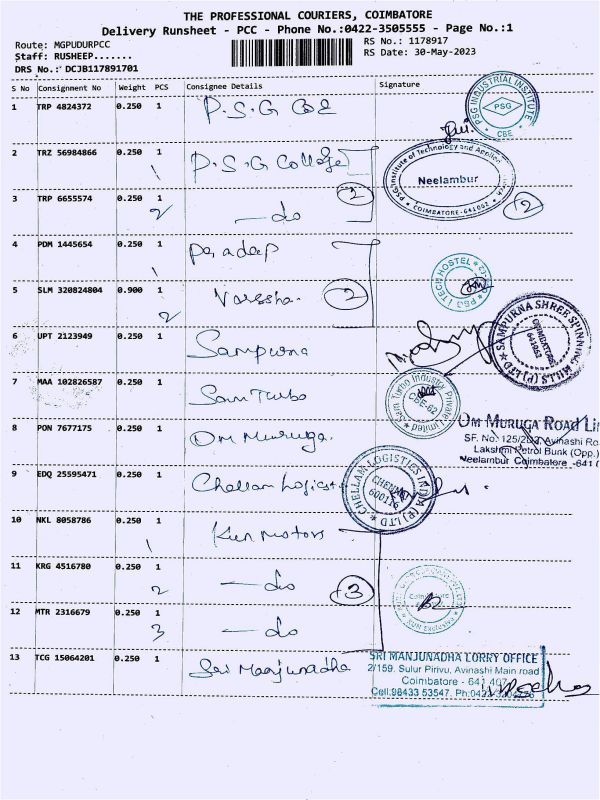 THE PROFESSIONAL COURIERS, COIMBATORE
Delivery Runsheet - PCC - Phone No.:0422-3505555 - Page No.:1
Route: MGPUDURPCC
RS No.: 1178917
Staff: RUSHEEP.......
RS Date: 30-May-2023
DRS No.: DCJB117891701
S No Consignment No Weight PCS Consignee Details Signature
1 TRP 4824372 0.250 1 P.S.G CBE
PSG INDUSTRIAL INSTITUTE
PSG
CBE
2 TRZ 56984866 0.250 1 P.S.G College
1
PSG Institute of Technology and Applied
Neelambur
COIMBATORE-641062
2
3 TRP 6655574 0.250 1 — do
2
2
4 PDM 1445654 0.250 1 Pradeep
1
PSG iTECH HOSTEL
5 SLM 320824804 0.900 1
2
2
6 UPT 2123949 0.250 1 Sampurna
SAMPURNA SHREE SPINNING MILLS (P) LTD
COIMBATORE
7 MAA 102826587 0.250 1 Sam Turbo
Sam Turbo Industry Private Limited
CBE-62
8 PON 7677175 0.250 1 Om Muruga
OM MURUGA ROAD LI
SF. No: Avinashi Ro
Lakshmi Petrol Bunk (Opp.)
Neelambur Coimbatore -641
9 EDQ 25595471 0.250 1 Chellam Logistics
CHELLAM LOGISTICS INDIA (P) LTD
CHENNAI
600116
10 NKL 8058786 0.250 1 Kun Motors
1
11 KRG 4516780 0.250 1 — do
2
3
12 MTR 2316679 0.250 1 — do
3
13 TCG 15064201 0.250 1 Sri Manjunadha
SRI MANJUNADHA LORRY OFFICE
2/159. Sulur Pirivu, Avinashi Main road
Coimbatore - 641 407
Cell:98433 53547. Ph:0422